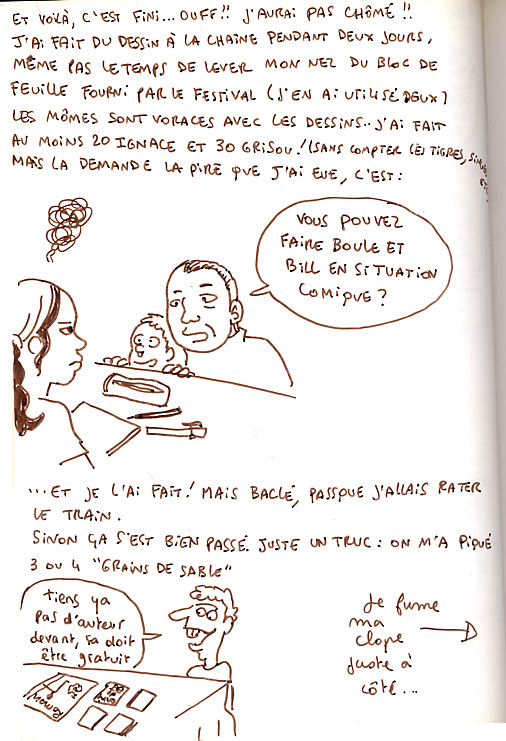 ET VOILÀ, C'EST FINI... OUFF!! J'AURAI PAS CHÔMÉ!!
J'AI FAIT DU DESSIN À LA CHAINE PENDANT DEUX JOURS,
MÊME PAS LE TEMPS DE LEVER MON NEZ DU BLOC DE
FEUILLE FOURNI PAR LE FESTIVAL (J'EN AI UTILISÉ DEUX)
LES MÔMES SONT VORACES AVEC LES DESSINS.. J'AI FAIT
AU MOINS 20 IGNACE ET 30 GRISOU! (SANS COMPTER LES TIGRES,
ETC,
MAIS LA DEMANDE LA PIRE QUE J'AI EUE, C'EST:
VOUS POUVEZ
FAIRE BOULE ET
BILL EN SITUATION
COMIQUE?
...ET JE L'AI FAIT! MAIS BACLÉ, PASSQUE J'ALLAIS RATER
LE TRAIN.
SINON ÇA S'EST BIEN PASSÉ. JUSTE UN TRUC: ON M'A PIQUÉ
3 OU 4 "GRAINS DE SABLE"
tiens ya
pas d'auteur
devant, sa doit
être gratuit
Je fume
ma
clope
juste à
côté...